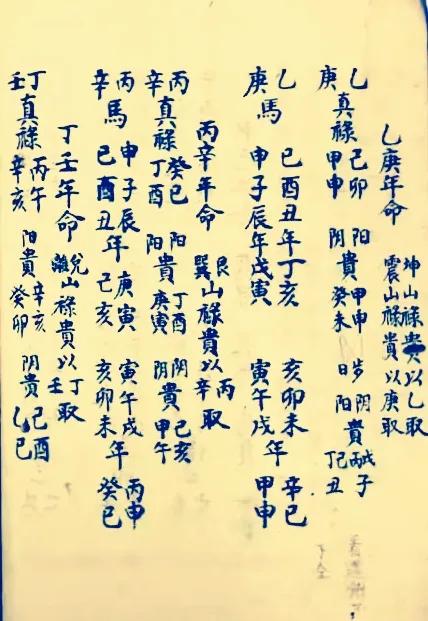 乙庚年命 坤山祿貴以乙取 震山祿貴以庚取
乙庚真祿 己卯 甲申 陽陰貴 甲申 癸未 陰陽貴 子 丁己丑
乙庚馬 巳酉丑年丁亥 申子辰年戊寅 亥卯未寅午戌年 辛巳 甲申
丙辛年命 艮巽山祿貴以丙辛取
丙辛真祿 癸巳 丁酉 阳阳貴 丁酉 庚寅 阴阴貴 己亥 甲午
丙辛馬 申子辰巳酉丑年 庚寅 己亥 寅午戌亥卯未年 丙申 癸巳
丁壬年命 兌離山祿貴以丁壬取
丁壬真祿 丙午 辛亥 阳貴 辛亥 癸卯 阴貴 己酉 乙巳